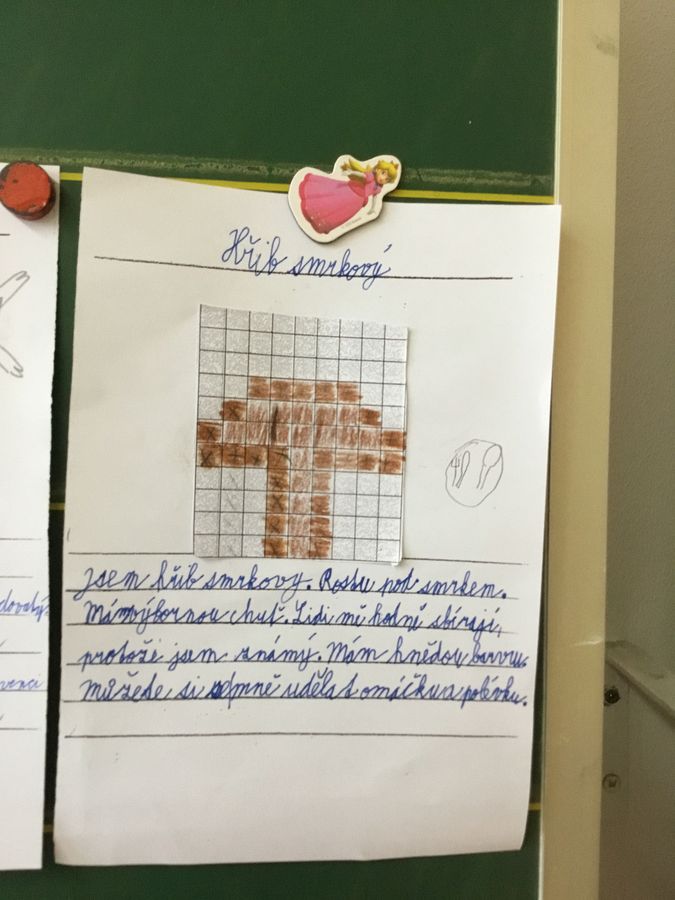 Hřib smrkový
jsem hřib smrkovy. Rostu pod smrkem.
Mám výbornou chuť. Lidi mě hodně sbírají,
protože jsem známý. Mám hnědou barvu.
můžete si ze mně udělat omáčku a polévku.
dovatý.